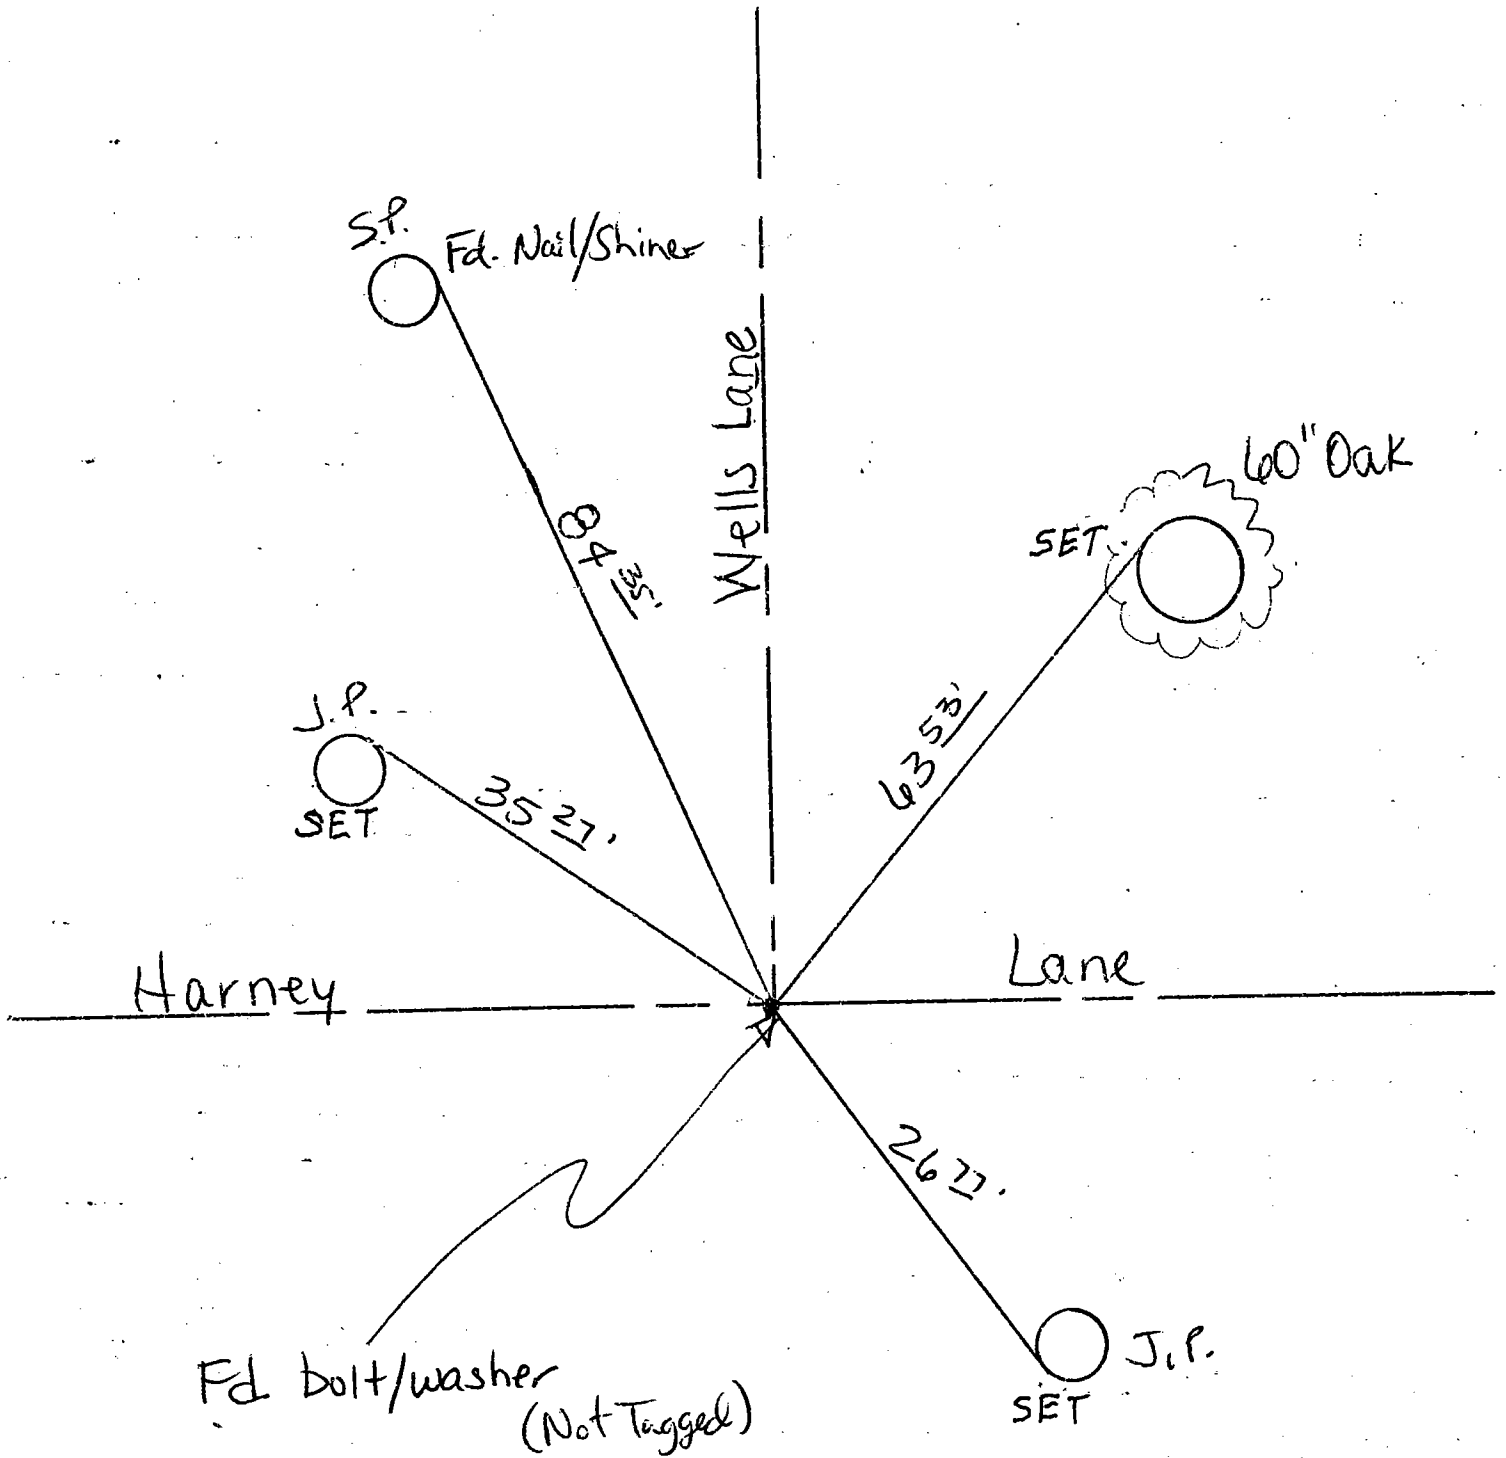 S.P.
Fd. Nail/Shiner
Wells Lane
60" Oak
SET
84 35'
J.P.
SET
35 27'
63 53'
Harney Lane
26 77'
Fd. bolt/washer
(Not Tagged)
J.P.
SET